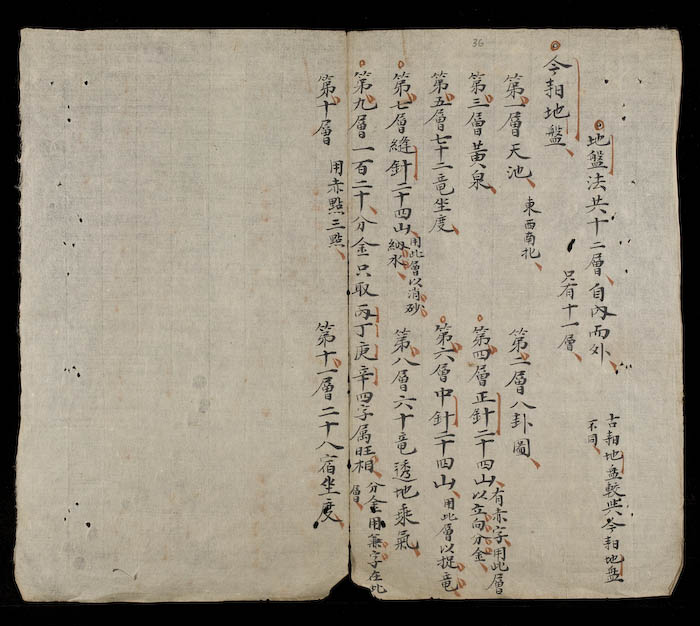 36
地盤法共十二層自內而外
古𨋢地盤較与今𨋢地盤
不同
今𨋢地盤
只有十一層
第一層天池
東西南北
第二層八卦圖
第三層黃泉
第四層正針二十四山
有赤字用此層
以立向分金
第五層七十二竜坐度
第六層中針二十四山
用此層以捉竜
第七層縫針二十四山
用此層以消砂
納水
第八層六十竜透地乘氣
第九層一百二十分金只取丙丁庚辛四字属旺相
分金用兼字在此
層
第十層
用赤點三點
第十一層二十八宿坐度